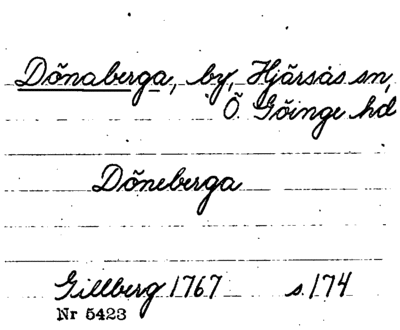 Dönaberga, by, Hjärsås sn,
Ö. Göinge hd
Döneberga
Gillberg 1767 s. 174
Nr 5423